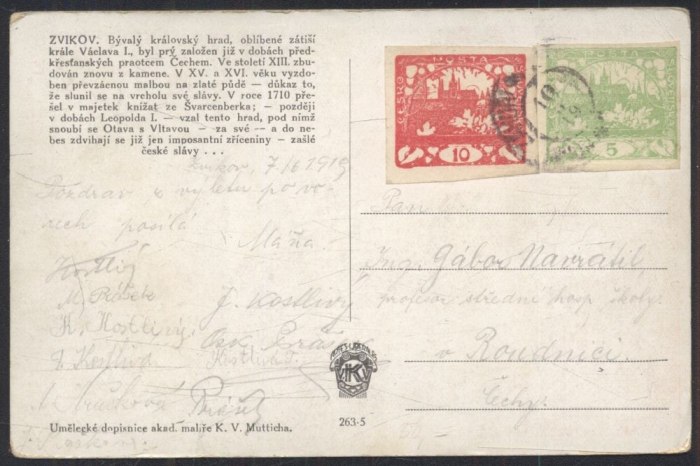 ZVIKOV. Bývalý královský hrad, oblíbené zátiší
krále Václava I., byl prý založen již v dobách před-
křesťanských praotcem Čechem. Ve století XIII. zbu-
dován znovu z kamene. V XV. a XVI. věku vyzdo-
ben převzácnou malbou na zlaté půdě — důkaz to,
že slunil se na vrcholu své slávy. V roce 1710 pře-
šel v majetek knížat ze Švarcenberka; — později
v dobách Leopolda I. — vzal tento hrad, pod nímž
snoubí se Otava s Vltavou — za své — a do ne-
bes zdvihají se již jen imposantní zříceniny — zašlé
české slávy . . .
7/6 1919
Pozdrav z výletu po vo-
posílá
Máňa
Kostlivý
J. Kostlivý
K. Kostlivý
Kostlivá
Umělecké dopisnice akad. malíře K. V. Mutticha.
263-5
ČESKO
POŠTA
10
5
VKV
Pan
Ing. Gábor Navrátil,
profesor střední hosp školy
v Roudnici
Čechy.